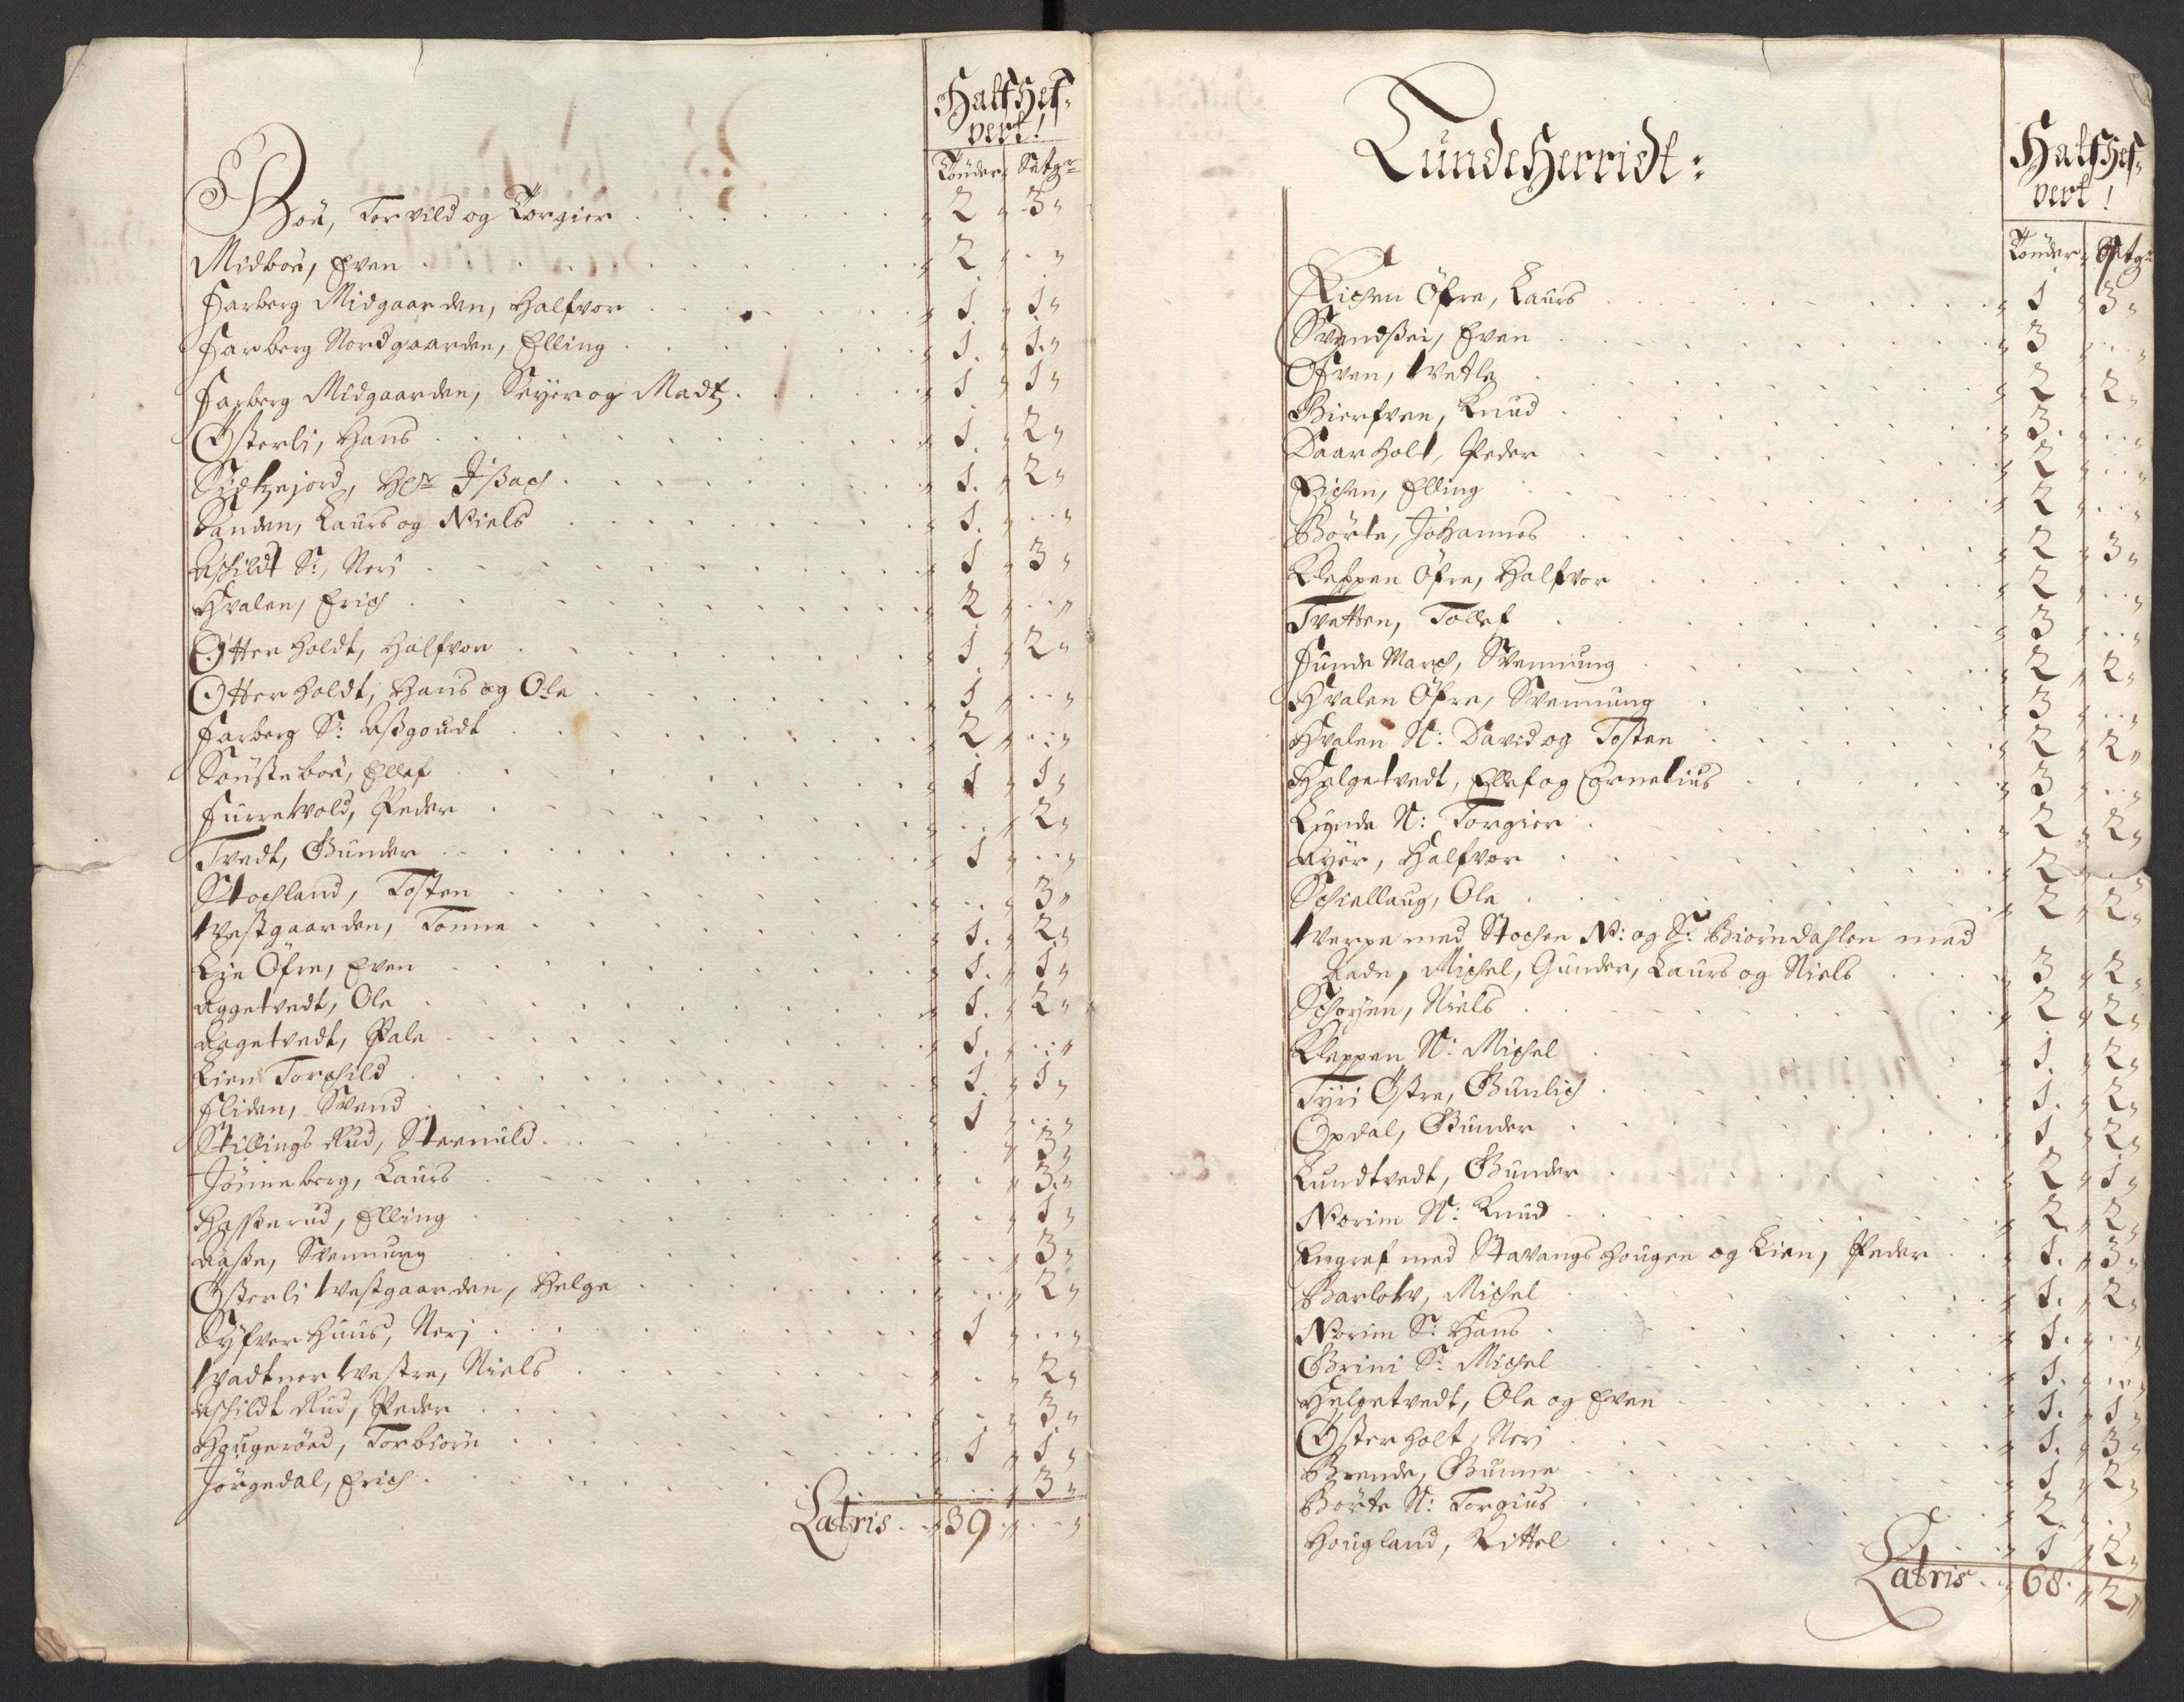 Half Hef,
vert!
Tönder, Setgr
Boe, Torvild og Torgier . . . . . . . „ 2 „ 3„
Midboe, Even . . . . . . . „ 2 „ . . „
Farberg Midgaarden, Halfvor . . . . . . . „ 1 „ 1„
Farberg Nordgaarden, Elling . . . . . . . „ 1. „ 1.„
Farberg Midgaarden, Seyer og Madtz . . . . . „ 1 „ 1„
Østerli, Hans . . . . . . . „ 1. „ 2„
Sydtzejord, Hr Jsach . . . . . . . „ 1. „ 2„
Sanden, Laurs og Niels . . . . . . . „ 1. „ . . „
Aschildt S:, Neri . . . . . . . „ 1 „ 3„
Hvalen, Erich . . . . . . . „ 2 „ . . „
Otterholdt, Halfvor . . . . . . . „ 1 „ 2„
Otterholdt, Hans og Ole . . . . . . . „ 1 „ . . „
Farberg S: Assgoudt . . . . . . . „ 2 „ . . „
Sousteboe, Ellef . . . . . . . „ 1 „ 1„
Furrevold, Peder . . . . . . . „ . . „ 2„
Tvedt, Gunder . . . . . . . „ 1 „ . . „
Stochland, Tosten . . . . . . . „ . . „ 3„
Westgaarden, Tonne . . . . . . . „ 1. „ 2„
Lie Öfre, Even . . . . . . . „ 1. „ 1„
Aggetvedt, Ole . . . . . . . „ 1. „ 2„
Aagetvedt, Pale . . . . . . . „ 1. „ . . „
Lien Torchild . . . . . . . „ 1. „ 1„
Fliden, Svend . . . . . . . „ 1 „ . . „
Stillings Rud, Steenuld . . . . . . . „ . „ 3„
Jönneberg, Laurs . . . . . . . „ . „ 3„
Hasserud, Elling . . . . . . . „ . „ 1„
Aasse, Svennung . . . . . . . „ . . „ 3„
Østerli Westgaarden, Helge . . . . . . . „ . . „ 2„
Syfverhuus, Neri . . . . . . . „ 1 „ . . „
Wadtner Westre, Niels . . . . . . . „ . „ 2„
Aschildt Rud, Peder . . . . . . . „ . „ 3„
Haugeröed, Torbiörn . . . . . . . „ 1 „ 1„
Jörgedal, Erich . . . . . . . „ . . „ 3„
Latris . . „ 39 „ . . „
LundeHerridt:
Half Hef,
vert!
Tönder, Setgr
Kichen Öfre, Laurs . . . . . . . „ 1 „ 3„
Svendssei, Even . . . . . . . „ 3 „ . . „
Ofven, Wetle . . . . . . . „ 2 „ 2„
Bierfven, Knud . . . . . . . „ 3. „ . . „
Daarholt, Peder . . . . . . . „ 2 „ . . „
Eichen, Elling . . . . . . . „ 2 „ . . „
Börte, Johannes . . . . . . . „ 2 „ 3„
Kleppen Öfre, Halfvor . . . . . . . „ 2 „ . . „
Tvetten, Tollef . . . . . . . „ 3 „ . . „
Funde March, Svennung . . . . . . . „ 2 „ 2„
Hvalen Öfre, Svennung . . . . . . . „ 3 „ . . „
Hvalen N: David og Tosten . . . . . . . „ 2 „ 2„
Helgetvedt, Ellef og Cornelius . . . . . „ 3 „ . . „
Lynde N: Torgier . . . . . . . „ 2 „ 2„
Ayer, Halfvor . . . . . . . „ 2 „ . . „
Schiellaug, Ole . . . . . . . „ 2 „ 2„
Werpe med Stochen N: og S: Biörndahlen med
Aade, Michel, Gunder, Laurs og Niels . . . „ 3 „ 2„
Schoyen, Niels . . . . . . . „ 2 „ 2„
Kleppen N: Michel . . . . . . . „ 1. „ 2„
Tyri Östre, Gunlich . . . . . . . „ 1. „ 2„
Opdal, Gunder . . . . . . . „ 1 „ 2„
Lundtvedt, Gunder . . . . . . . „ 2 „ 1„
Norim N: Knud . . . . . . . „ 2. „ 2„
Engraf med Stavangs Hougen og Lien, Peder . . „ 1. „ 3„
Barlow, Michel . . . . . . . „ 1. „ 2„
Norim S: Hans . . . . . . . „ 1. „ . . „
Grini S: Michel . . . . . . . „ 1. „ . . „
Helgetvedt, Ole og Even . . . . . . . „ 1. „ 1„
Østerholt, Neri . . . . . . . „ 1. „ 3„
Brende, Gunne . . . . . . . „ 1 „ 2„
Börte N: Torgius . . . . . . . „ 2 „ . . „
Hougland, Kittel . . . . . . . „ 1 „ 2„
Latris . „ 68. „ 2„